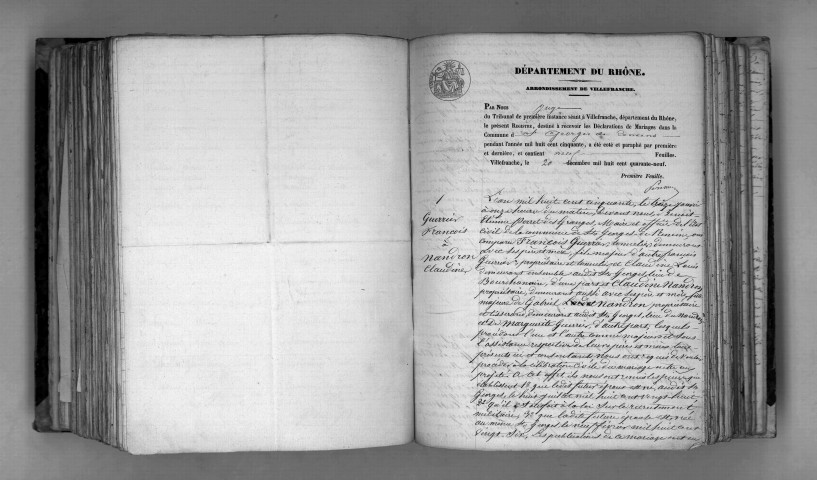 DÉPARTEMENT DU RHÔNE.
ARRONDISSEMENT DE VILLEFRANCHE.
PAR NOUS Juge
du Tribunal de première instance séant à Villefranche, département du Rhône,
le présent REGISTRE, destiné à recevoir les Déclarations de Mariages dans la
Commune d St Georges de Reneins
pendant l'année mil huit cent cinquante, a été coté et paraphé par première
et dernière, et contient neuf Feuilles.
Villefranche, le 20 décembre mil huit cent quarante-neuf.
Première Feuille.
1
Guerrier
François
&
Nandron
Claudine
L'an mil huit cent cinquante, le onze janvier
à onze heures du matin, devant nous Benoit
Etienne des Granges, Maire et officier de l'état
Civil de la commune de St Georges de Reneins, ont
comparu François Guerrier, tonnelier, demeurant
avec ses père et mère, fils majeur d'autre françois
Guerrier, propriétaire et tonnelier et Claudine Louis
demeurant ensemble audit St Georges lieu de
d'une part et Claudine Nandron
propriétaire, demeurant aussi avec ses père et mère, fille
majeure de Gabriel Nandron, propriétaire
et tisserand, demeurant audit St Georges, lieu de Nandron
et de Marguerite Guerrier, d'autre part, lesquels
procédant l'un et l'autre comme majeurs et sous
l'assistance respective de leurs père et mère, tous
présents ici et consentants nous ont requis de vouloir
procéder à la célébration civile du mariage entre eux
projeté. A cet effet ils nous ont remis les pièces qui
établissent 1° que ledit futur époux est né, audit St
Georges, le huit juillet mil huit cent vingt huit,
2° qu'il a satisfait à la loi sur le recrutement
militaire, 3° que ladite future épouse est née
au même St Georges le neuf février mil huit cent
vingt-six. Les publications de ce mariage ont eu